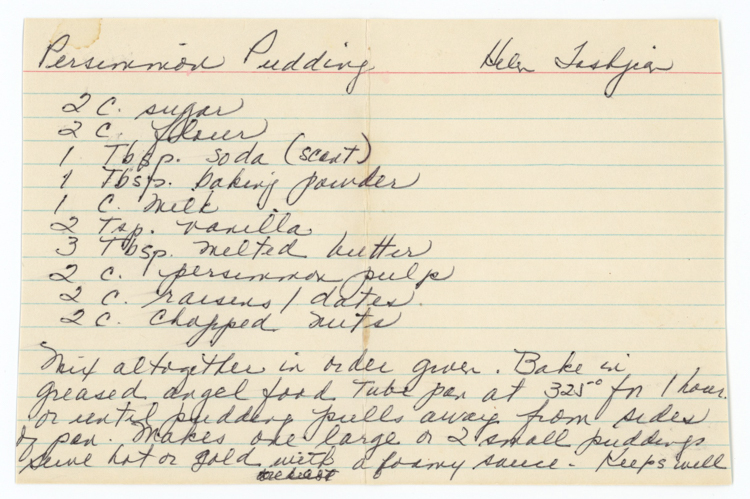 Persimmon Pudding Helen Tashjian
2 C. sugar
2 C. flour
1 Tbsp. soda (scant)
1 Tbsp. baking powder
1 C. milk
2 Tsp. vanilla
3 Tbsp. melted butter
2 C. persimmon pulp
2 C. raisens / dates.
2 C. chopped nuts
Mix altogether in order given. Bake in
greased angel food Tube pan at 325° for 1 hour.
or until pudding pulls away from sides
of pan. Makes one large or 2 small puddings
Serve hot or cold with a foamy sauce. Keeps well